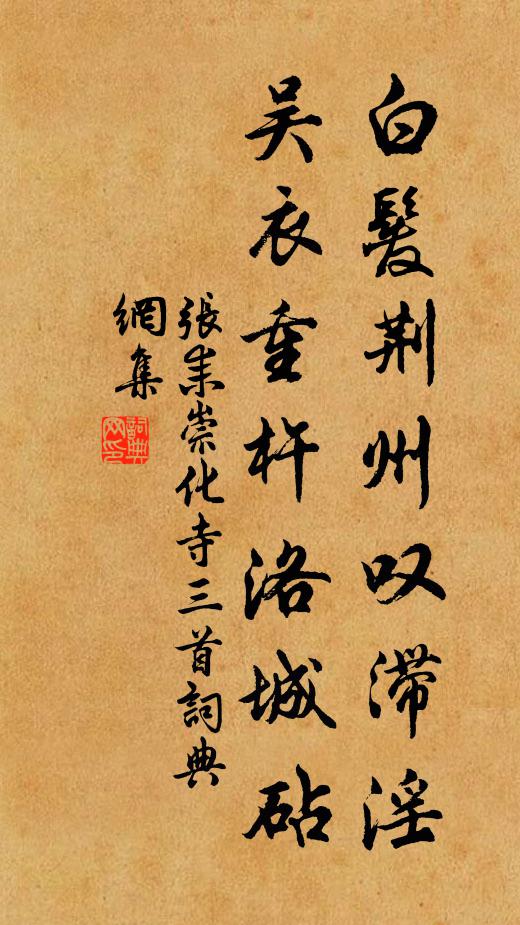 白髮荆州叹滯淫
吴衣重杵洛城砧
張耒崇化寺三首詞典
網集
詞典
网印